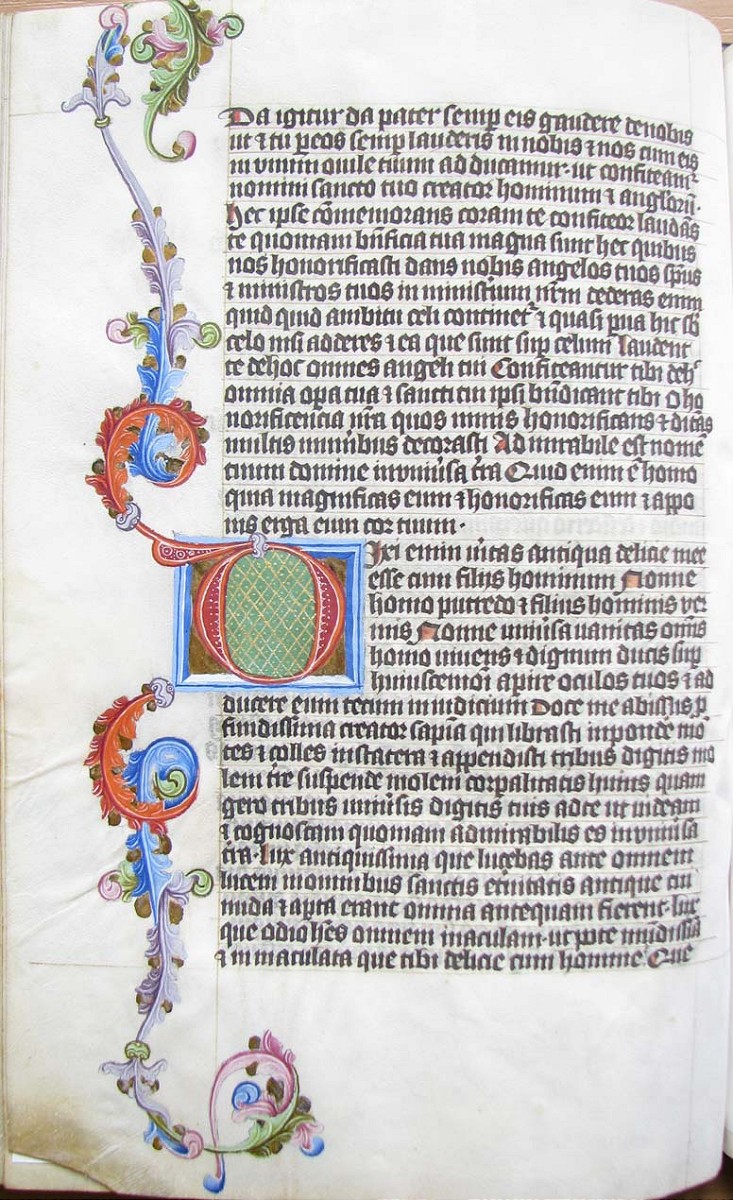 Da igitur da pater semp eis gaudere denobis
ut ⁊ tu p eos semp lauderis in nobis ⁊ nos cum eis
in unum ouile tuum ad ducamur· ut confiteamᷣ
nomini sancto tuo creator hominum ⁊ anglorū·
hec ipse cōmemorans coram te confiteor laudās
te quoniam bn̄ficia tua magna sunt hec quibus
nos honorificasti dans nobis angelos tuos sp̄us
⁊ ministros tuos in ministium nr̄m dederas enim
quid quid ambitu celi continetᷣ ⁊ quasi pua hic sb̄
celo nisi adderes ⁊ ea que sunt sup celum laudent
te dehoc omnes angeli tui Confiteantur tibi deh᷒
omnia opa tua ⁊ sancti tui ipsi bn̄dicant tibi O ho
norificencia nr̄a quos nimis honorificans ⁊ ditās
multis munibus decorasti Admirabile est nomē
tuum domine inuniūsa tr̄a Quid enim ē homo
quia magnificas eum ⁊ honorificas eum ⁊ appo
nis erga eum cor tuum·
Ixi enim ūitas antiqua delicie mee
esse cum filijs hominum Nonne
homo putredo ⁊ filius hominis ver
mis Nonne uniūsa uanitas om̄is
homo uiuens ⁊ dignum ducis sup
huiuscemōi apire oculos tuos ⁊ ad
ducere eum tecum iniudicium Doce me abissus p
fundissima creator sapīa qui librasti inponde mō
tes ⁊ colles instatera ⁊ appendisti tribus digitis mo
lem tr̄e suspende molem corpalitatis huius quam
gero tribus inuisis digitis tuis adte ut uideam
⁊ cognoscam quoniam admirabilis es inuniūsa
tr̄a· lux antiquissima que lucebas ante omnem
lucem montibus sanctis etnitatis antique cui
nuda ⁊ apta erant omnia antequam fierent· lux
que odio hēs omnem maculam· ut pote mūdissīa
⁊ inmaculata que tibi delicie cum homine Que